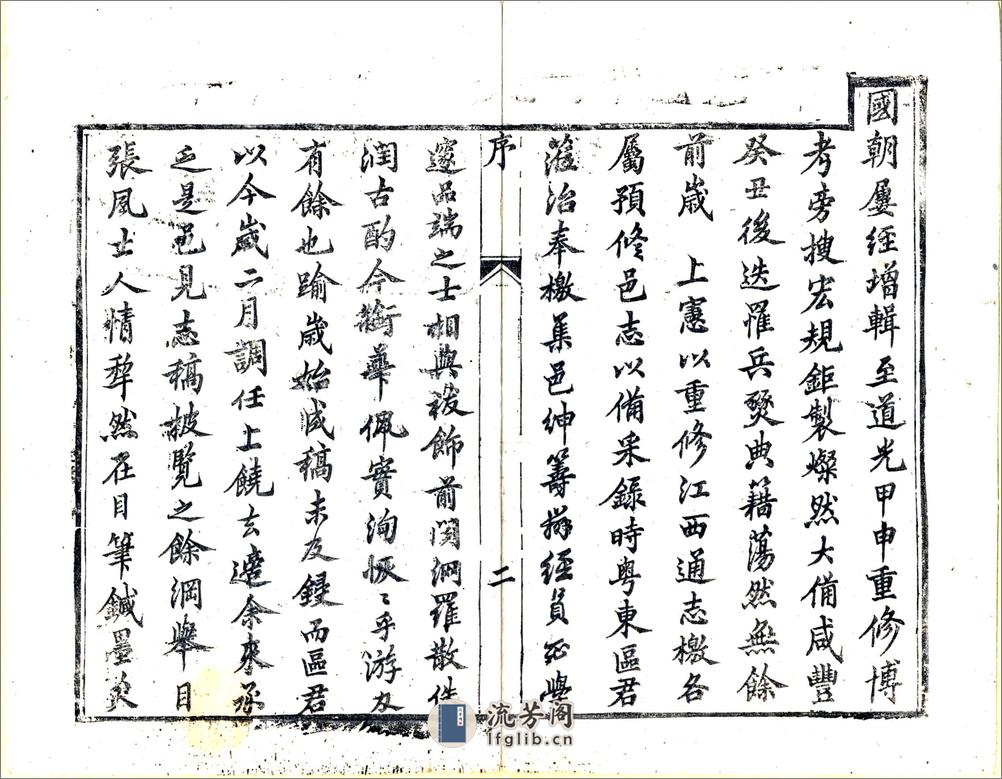 國朝屢經增輯至道光甲申重修博
考旁搜宏規鉅製燦然大備咸豐
癸丑後迭罹兵燹典籍蕩然無餘
前歲 上憲以重修江西通志檄各
屬預修邑志以備采錄時粵東區君
蒞治奉檄集邑紳籌辦經員
序
二
邃品端之士相與祓飾前聞網羅散佚
潤古酌今銜華佩實洵恢〻乎游刃
有餘也踰歲始成稿未及錄而區君
以今歲二月調任上饒去適余來承
乏是邑見志稿披覽之餘綱舉目
張風土人情犂然在目筆鍼墨灸
流芳阁
lfglib.cn